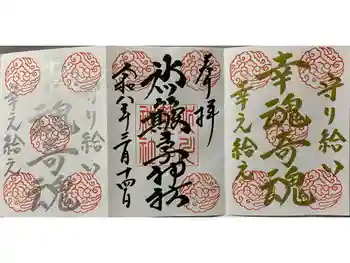 守り給い
幸魂奇魂
幸え給え
奉拝
神社
令和八年三月十四日
守り給い
幸魂奇魂
幸え給え